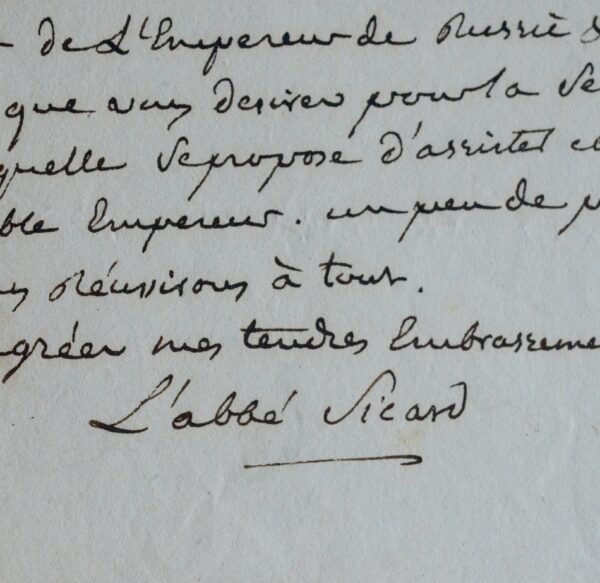 de L'Empereur de Russie &
que vous desirez pour la Se
quelle se propose d'assister
ble Empereur. un peu de
Réussirons à tout.
gréer mes tendres Embrasseme
L'abbé Sicard